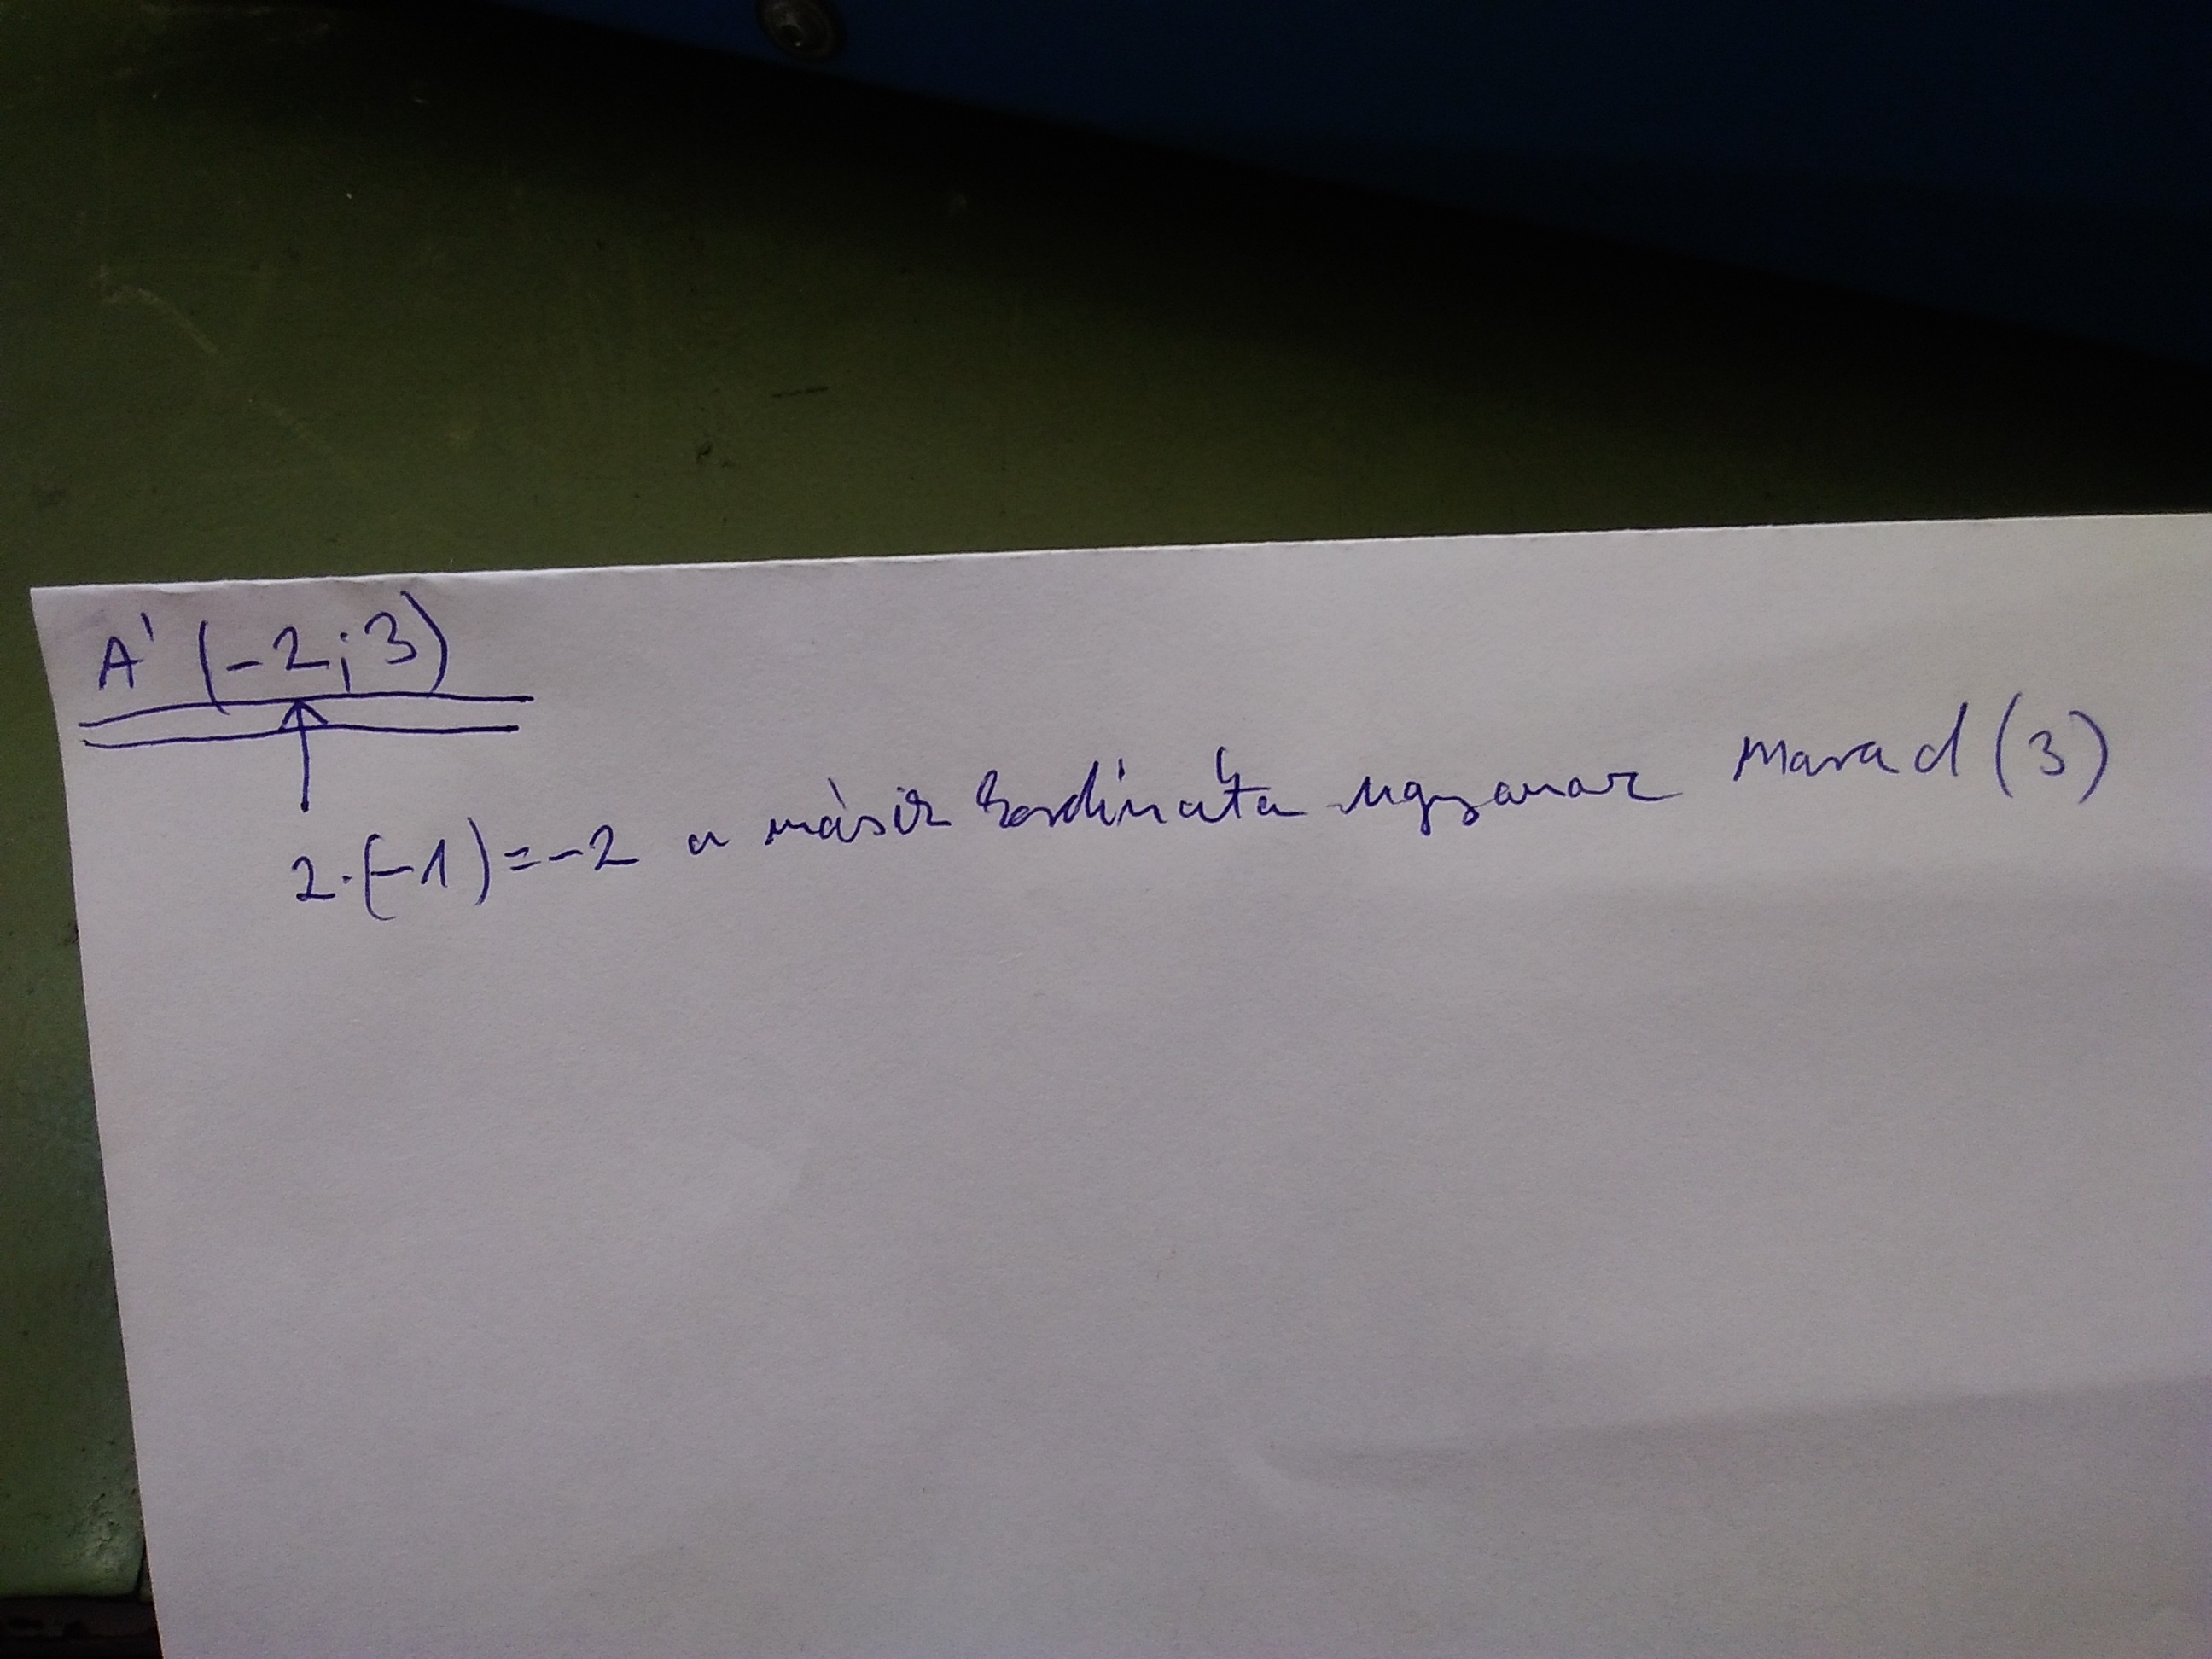 A' (-2; 3)
2·(-1)=-2 a másik kordináta ugyanaz marad (3)